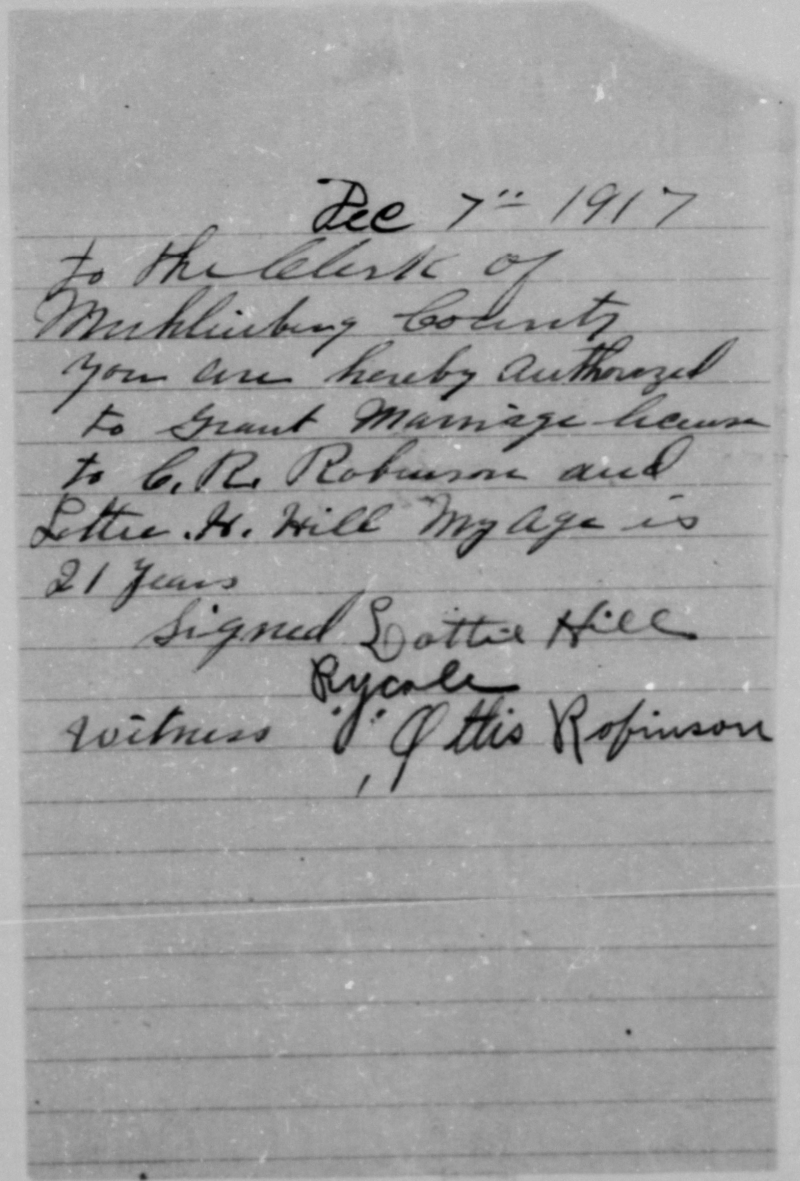 Dec 7" 1917
to the Clerk of
Muhlinburg County
you are hereby authorized
to grant Marriage license
to C. R. Robinson and
Lottie .H. Hill My age is
21 years
Signed Lottie Hill
witness " Ottis Robinson